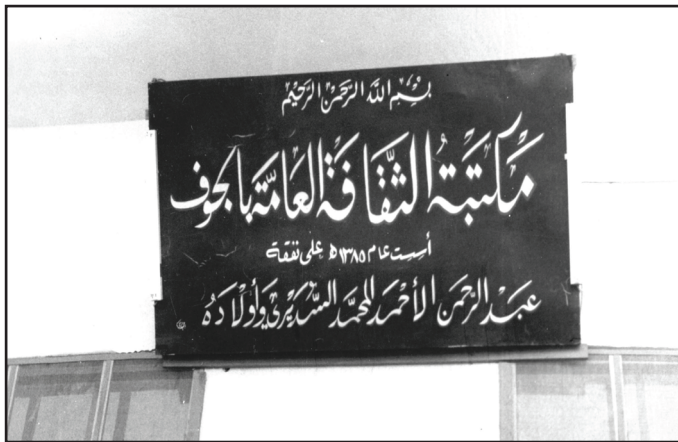 بِسْمِ اللهِ الرَّحْمٰنِ الرَّحِيْمِ
مَكتبَةُ الثَّقَافَة العَامَّة بالجَوف
أسست عام ١٣٨٥ه على نفقة
عَبْد الرَّحمن الأحْمَد المحمَّد السُّدَيْري وَأوْلَادُهُ